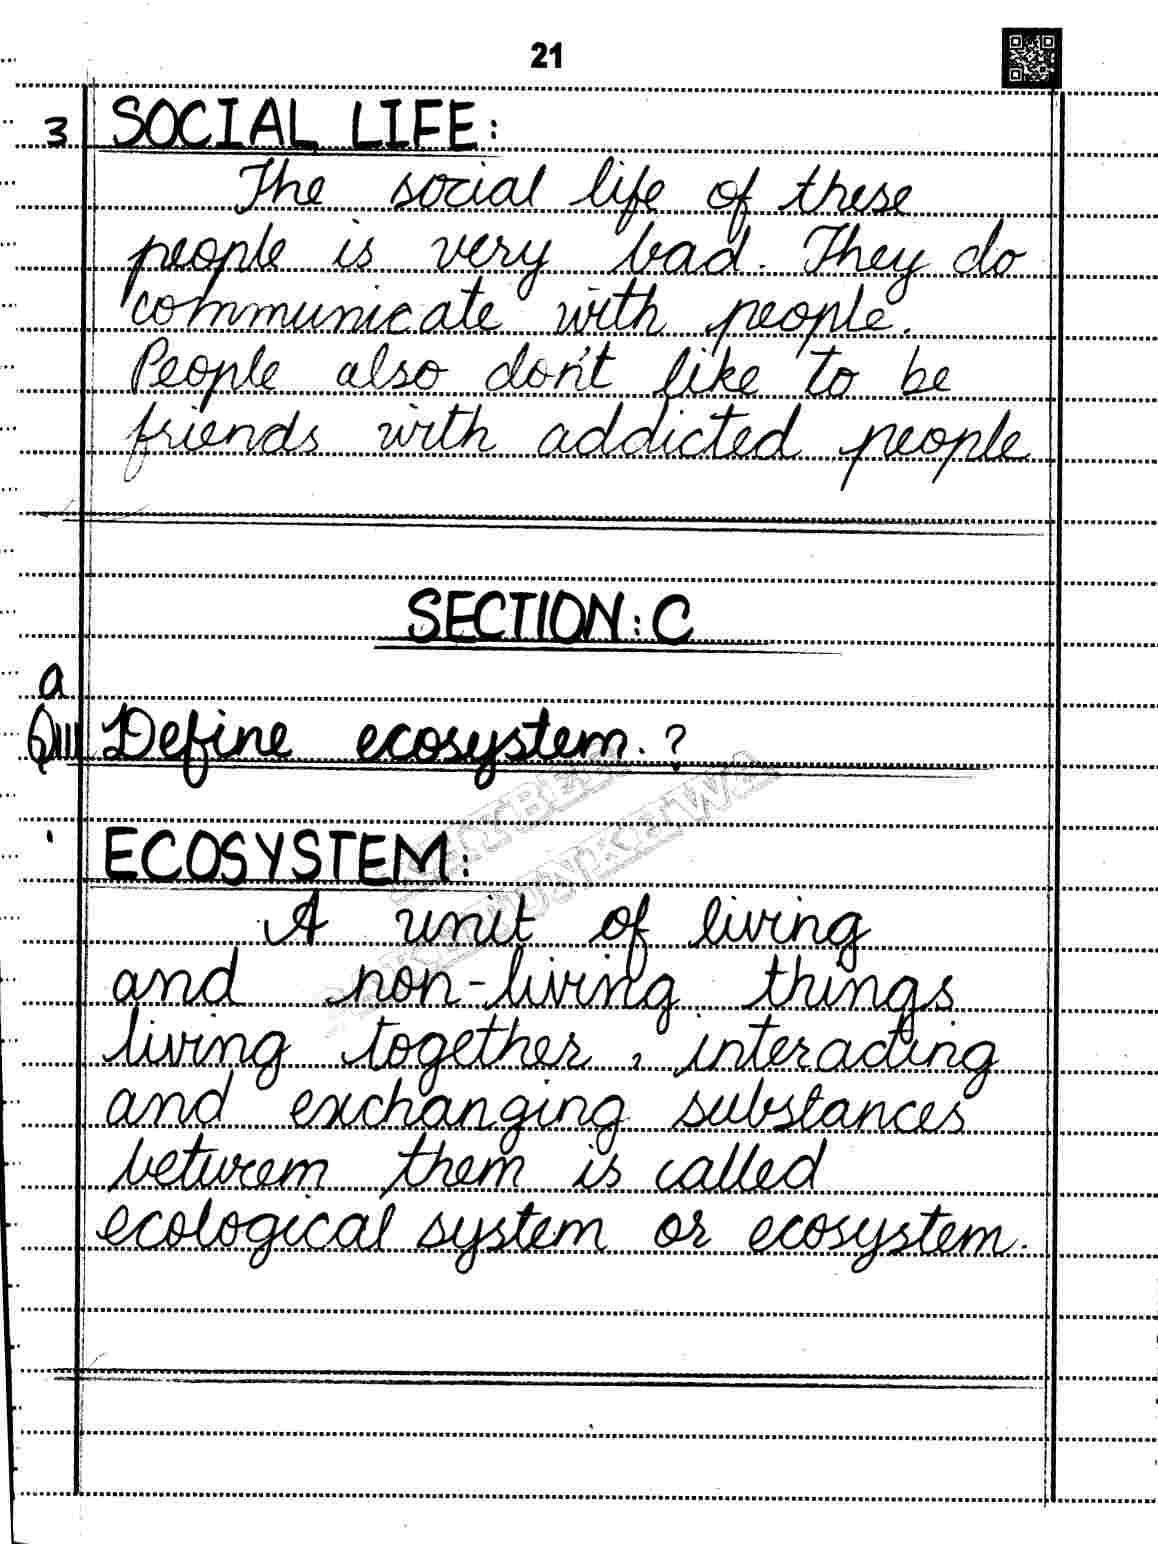 21
3 SOCIAL LIFE:
The social life of these
people is very bad. They do
communicate with people.
People also don't like to be
friends with addicted people
SECTION: C
a
QIII Define ecosystem.?
ECOSYSTEM:
A unit of living
and non-living things
living together, interacting
and exchanging substances
between them is called
ecological system or ecosystem.